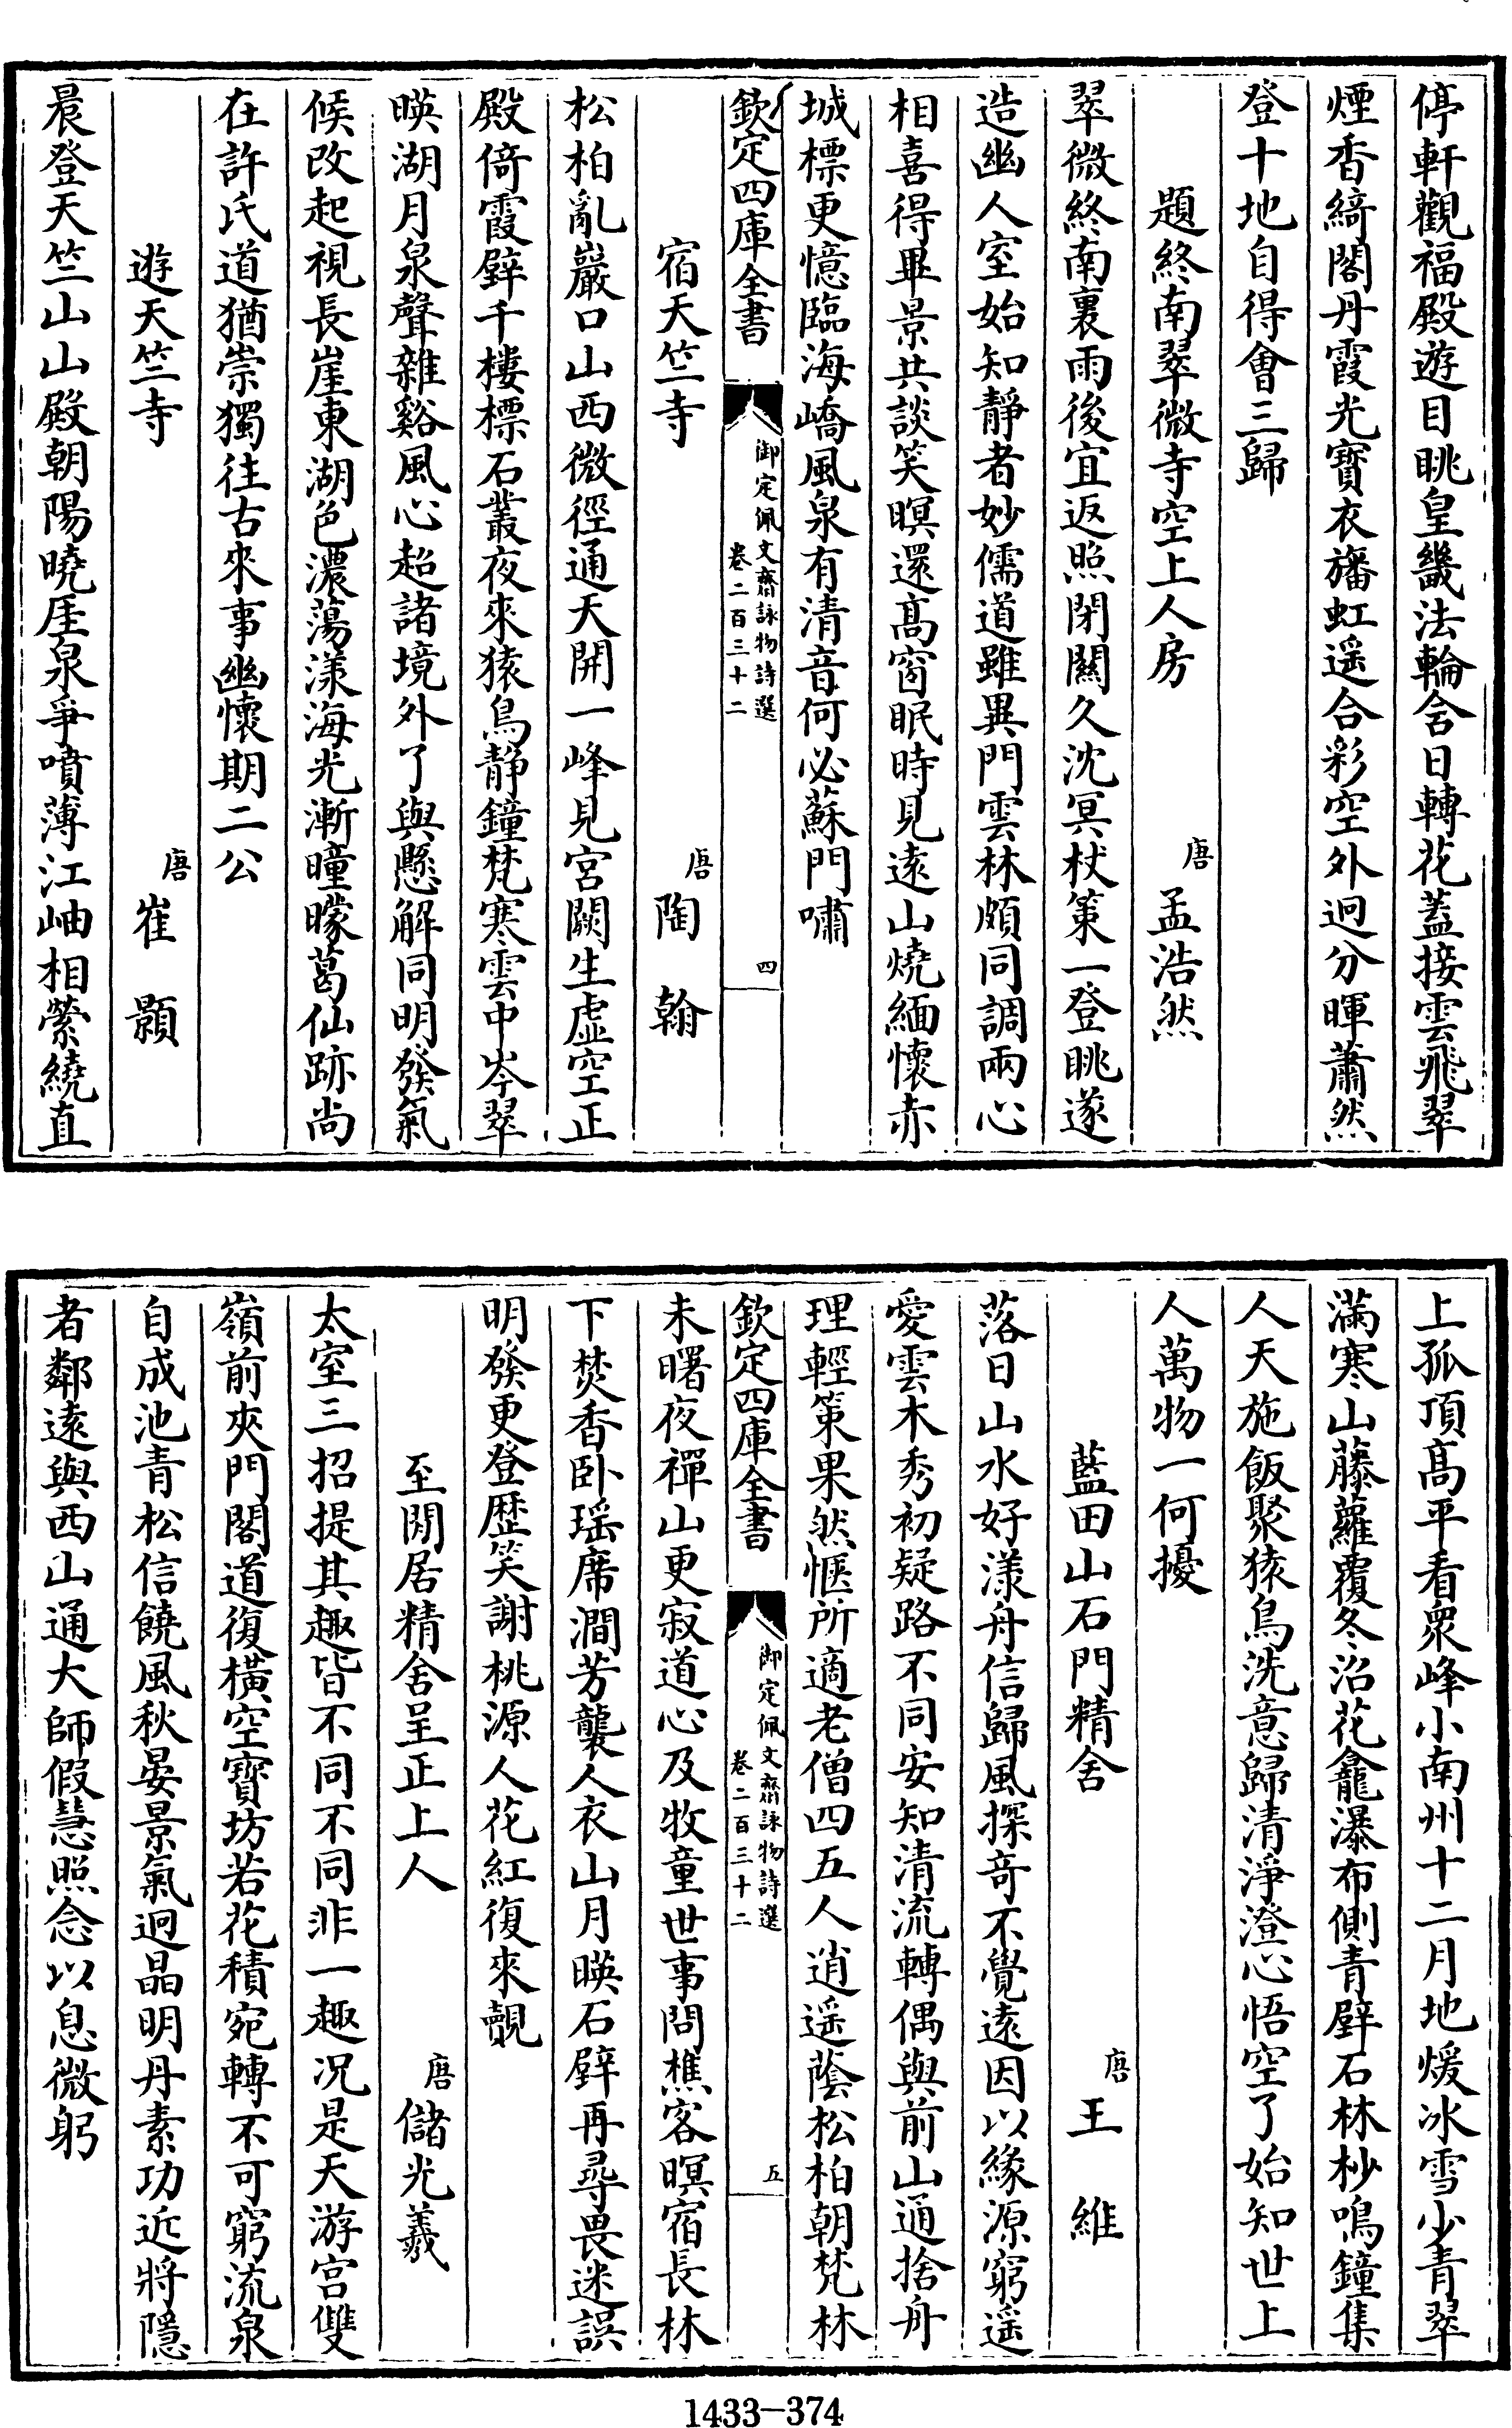 停軒觀福殿遊目眺皇畿法輪含日轉花蓋接雲飛翠
煙香綺閣丹霞光寶衣旛虹遥合彩空外迥分暉蕭然
登十地自得會三歸
題終南翠微寺空上人房 唐 孟浩然
翠微終南裏雨後宜返照閉關久沈冥杖策一登眺遂
造幽人室始知靜者妙儒道雖異門雲林頗同調兩心
相喜得畢景共談笑暝還高窗眠時見遠山燒緬懷赤
城標更憶臨海嶠風泉有清音何必蘇門嘯
欽定四庫全書 御定佩文齋詠物詩選 卷二百三十二 四
宿天竺寺 唐 陶翰
松柏亂巖口山西微徑通天開一峰見宮闕生虛空正
殿倚霞壁千樓標石叢夜來猿鳥靜鐘梵寒雲中岑翠
暎湖月泉聲雜谿風心超諸境外了與懸解同明發氣
候改起視長崖東湖色濃蕩漾海光漸曈曚葛仙跡尚
在許氏道猶崇獨往古來事幽懷期二公
遊天竺寺 唐 崔顥
晨登天竺山山殿朝陽曉厓泉爭噴薄江岫相縈繞直
上孤頂高平看衆峰小南州十二月地煖冰雪少青翠
滿寒山藤蘿覆冬沼花龕瀑布側青壁石林杪鳴鐘集
人天施飯聚猿鳥洗意歸清淨澄心悟空了始知世上
人萬物一何擾
藍田山石門精舍 唐 王維
落日山水好漾舟信歸風探奇不覺遠因以緣源窮遥
愛雲木秀初疑路不同安知清流轉偶與前山通捨舟
理輕策果然愜所適老僧四五人逍遥蔭松柏朝梵林
欽定四庫全書 御定佩文齋詠物詩選 卷二百三十二 五
未曙夜禪山更寂道心及牧童世事問樵客暝宿長林
下焚香卧瑶席澗芳襲人衣山月暎石壁再尋畏迷誤
明發更登歷笑謝桃源人花紅復來覿
至閒居精舍呈正上人 唐 儲光羲
太室三招提其趣皆不同不同非一趣况是天游宮雙
嶺前夾門閣道復橫空寶坊若花積宛轉不可窮流泉
自成池青松信饒風秋晏景氣迥晶明丹素功近將隱
者鄰遠與西山通大師假慧照念以息微躬
1433-374